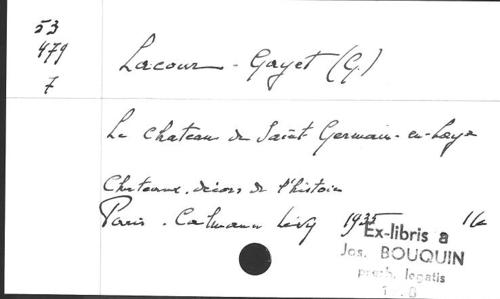 53
479
7
Lacour-Gayet (G.)
Le Chateau de Saint Germain-en-Laye
Chateaux, décors de l'histoire
Paris. Calmann Lévy 1935 16
Ex-libris a
Jos. BOUQUIN
presb. legatis